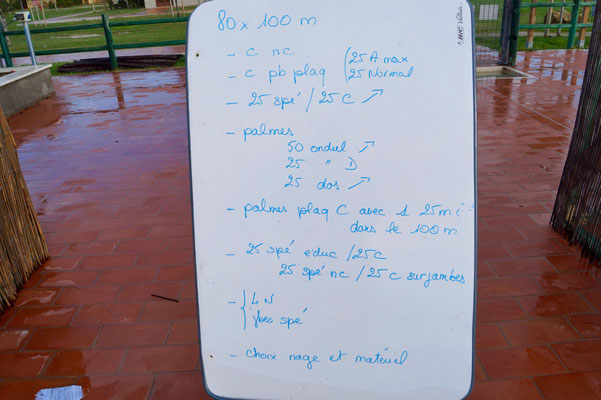 80 x 100 m
- C nc
- C pb plaq (25 A max
25 Normal
- 25 spé / 25 C ↗
- palmes
50 ondul ↗
25 " D
25 dos ↗
- palmes plaq C avec 1 25m i
dans le 100 m
- 25 spé educ / 25 C
25 spé nc / 25 C surjambes
- { 4 N
Jbes spé
- choix nage et matériel